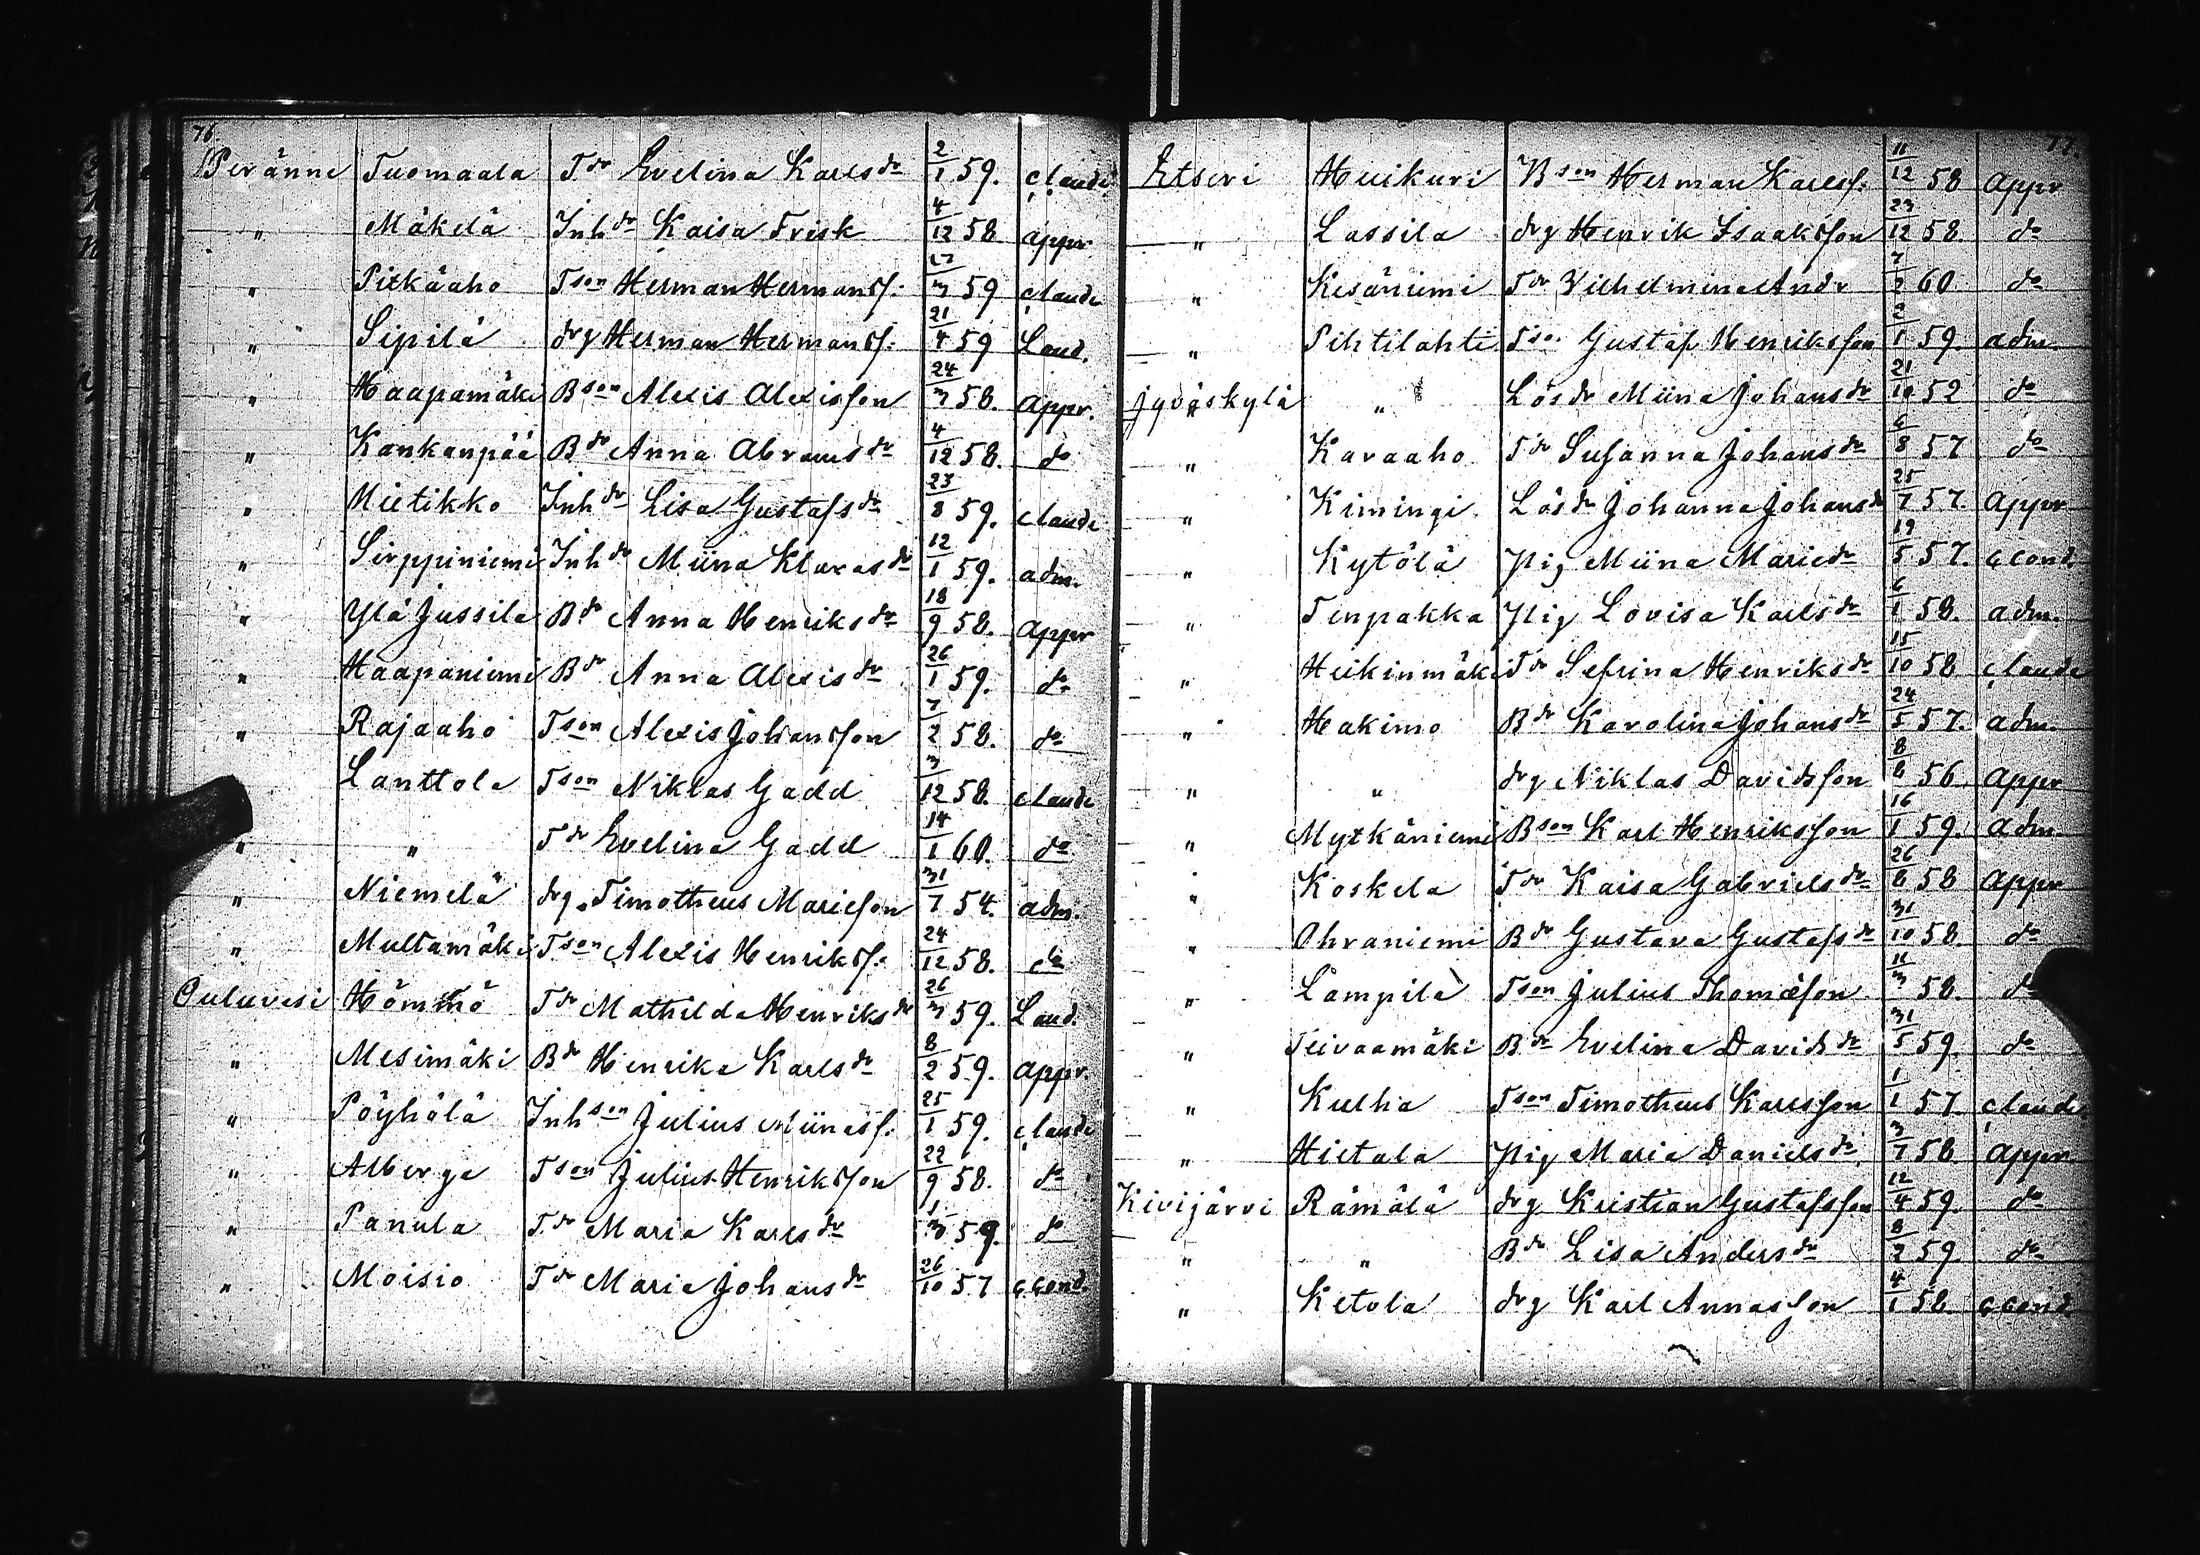 76.
Peränne Tuomaala Tdr Evelina Karlsdr 2/1 59. c. laude
" Mäkelä Inhdr Kaisa Frisk 4/12 58 appr.
" Pitkäaho Tson Herman Hermansf. 27/3 59 c laude
" Sipilä drg Herman Hermansf. 21/4 59 Laud.
" Haapamäki Bson Alexis Alexisson 24/3 58. appr.
" Kankanpää Bdr Anna Abramsdr 4/12 58. do
" Mietikko Inhdr Lisa Gustafsdr 23/8 59. c laude
" Sirppiniemi Inhdr Miina Klarasdr 12/1 59. adm.
" Ylä Jussila Bdr Anna Henriksdr 18/9 58. appr
" Haapaniemi Bdr Anna Alexisdr 26/1 59. do
" Rajaaho Tson Alexis Johansson 7/2 58. do
Lanttola Tson Niklas Gadd 3/12 58. c laude
" " Tdr Evelina Gadd 14/1 60. do
" Niemelä drg. Timotheus Marieson 31/7 54. adm.
" Multamäki Tson Alexis Henriksf. 24/12 58. do
Ouluvesi Hömmö Tdr Mathilda Henriksdr 26/3 59. Laud.
" Mesimäki Bdr Henrika Karlsdr 8/2 59. appr.
" Pöyhölä Inhson Julius Miinasf. 25/1 59. c laude
" Alberga Tson Julius Henriksson 22/9 58. do
" Panula Tdr Maria Karlsdr 1/3 59. do
" Moisio Tdr Maria Johansdr 26/10 57 c cond.
77.
Etseri Huikuri Bson Herman Karlsf. 11/12 58 appr
" Lassila drg Henrik Isaaksson 23/12 58. do
" Kesäniemi Tdr Vilhelmina Andr 7/2 60 do
" Pihtilahti Tson Gustaf Henriksson 2/1 59. adm.
Jyväskylä " Lösdr Miina Johansdr 21/10 52 do
" Karaaho Tdr Susanna Johansdr 6/8 57 do
" Kimingi Lösdr Johanna Johansdr 25/7 57. appr
" Kytölä pig Miina Mariedr 19/5 57. c cond.
" Tenpakka pig Lovisa Karlsdr 6/1 58. adm.
" Heikinmäki Tdr Sefrina Henriksdr 15/10 58 c laude
" Hakimo Bdr Karolina Johansdr 24/5 57. adm.
" " drg Niklas Davidsson 8/6 56. appr
" Mytkäniemi Bson Karl Henriksson 16/1 59. adm.
" Koskela Tdr Kaisa Gabrielsdr 26/8 58 appr
" Ohraniemi Bdr Gustava Gustafsdr 31/10 58. do
" Lampila Tson Julius Thomæson 11/3 58. do
" Teivaamäki Bdr Evelina Davidsdr 31/5 59. do
" Kulha Tson Timotheus Karlsson 1/1 57 c laude
" Hietala pig Maria Danielsdr 3/7 58. appr
Kivijärvi Rämälä drg Kristian Gustafsson 12/4 59. do
" " Bdr Lisa Andersdr 8/2 59. do
" Ketola drg Karl Annasson 4/1 58. c cond.